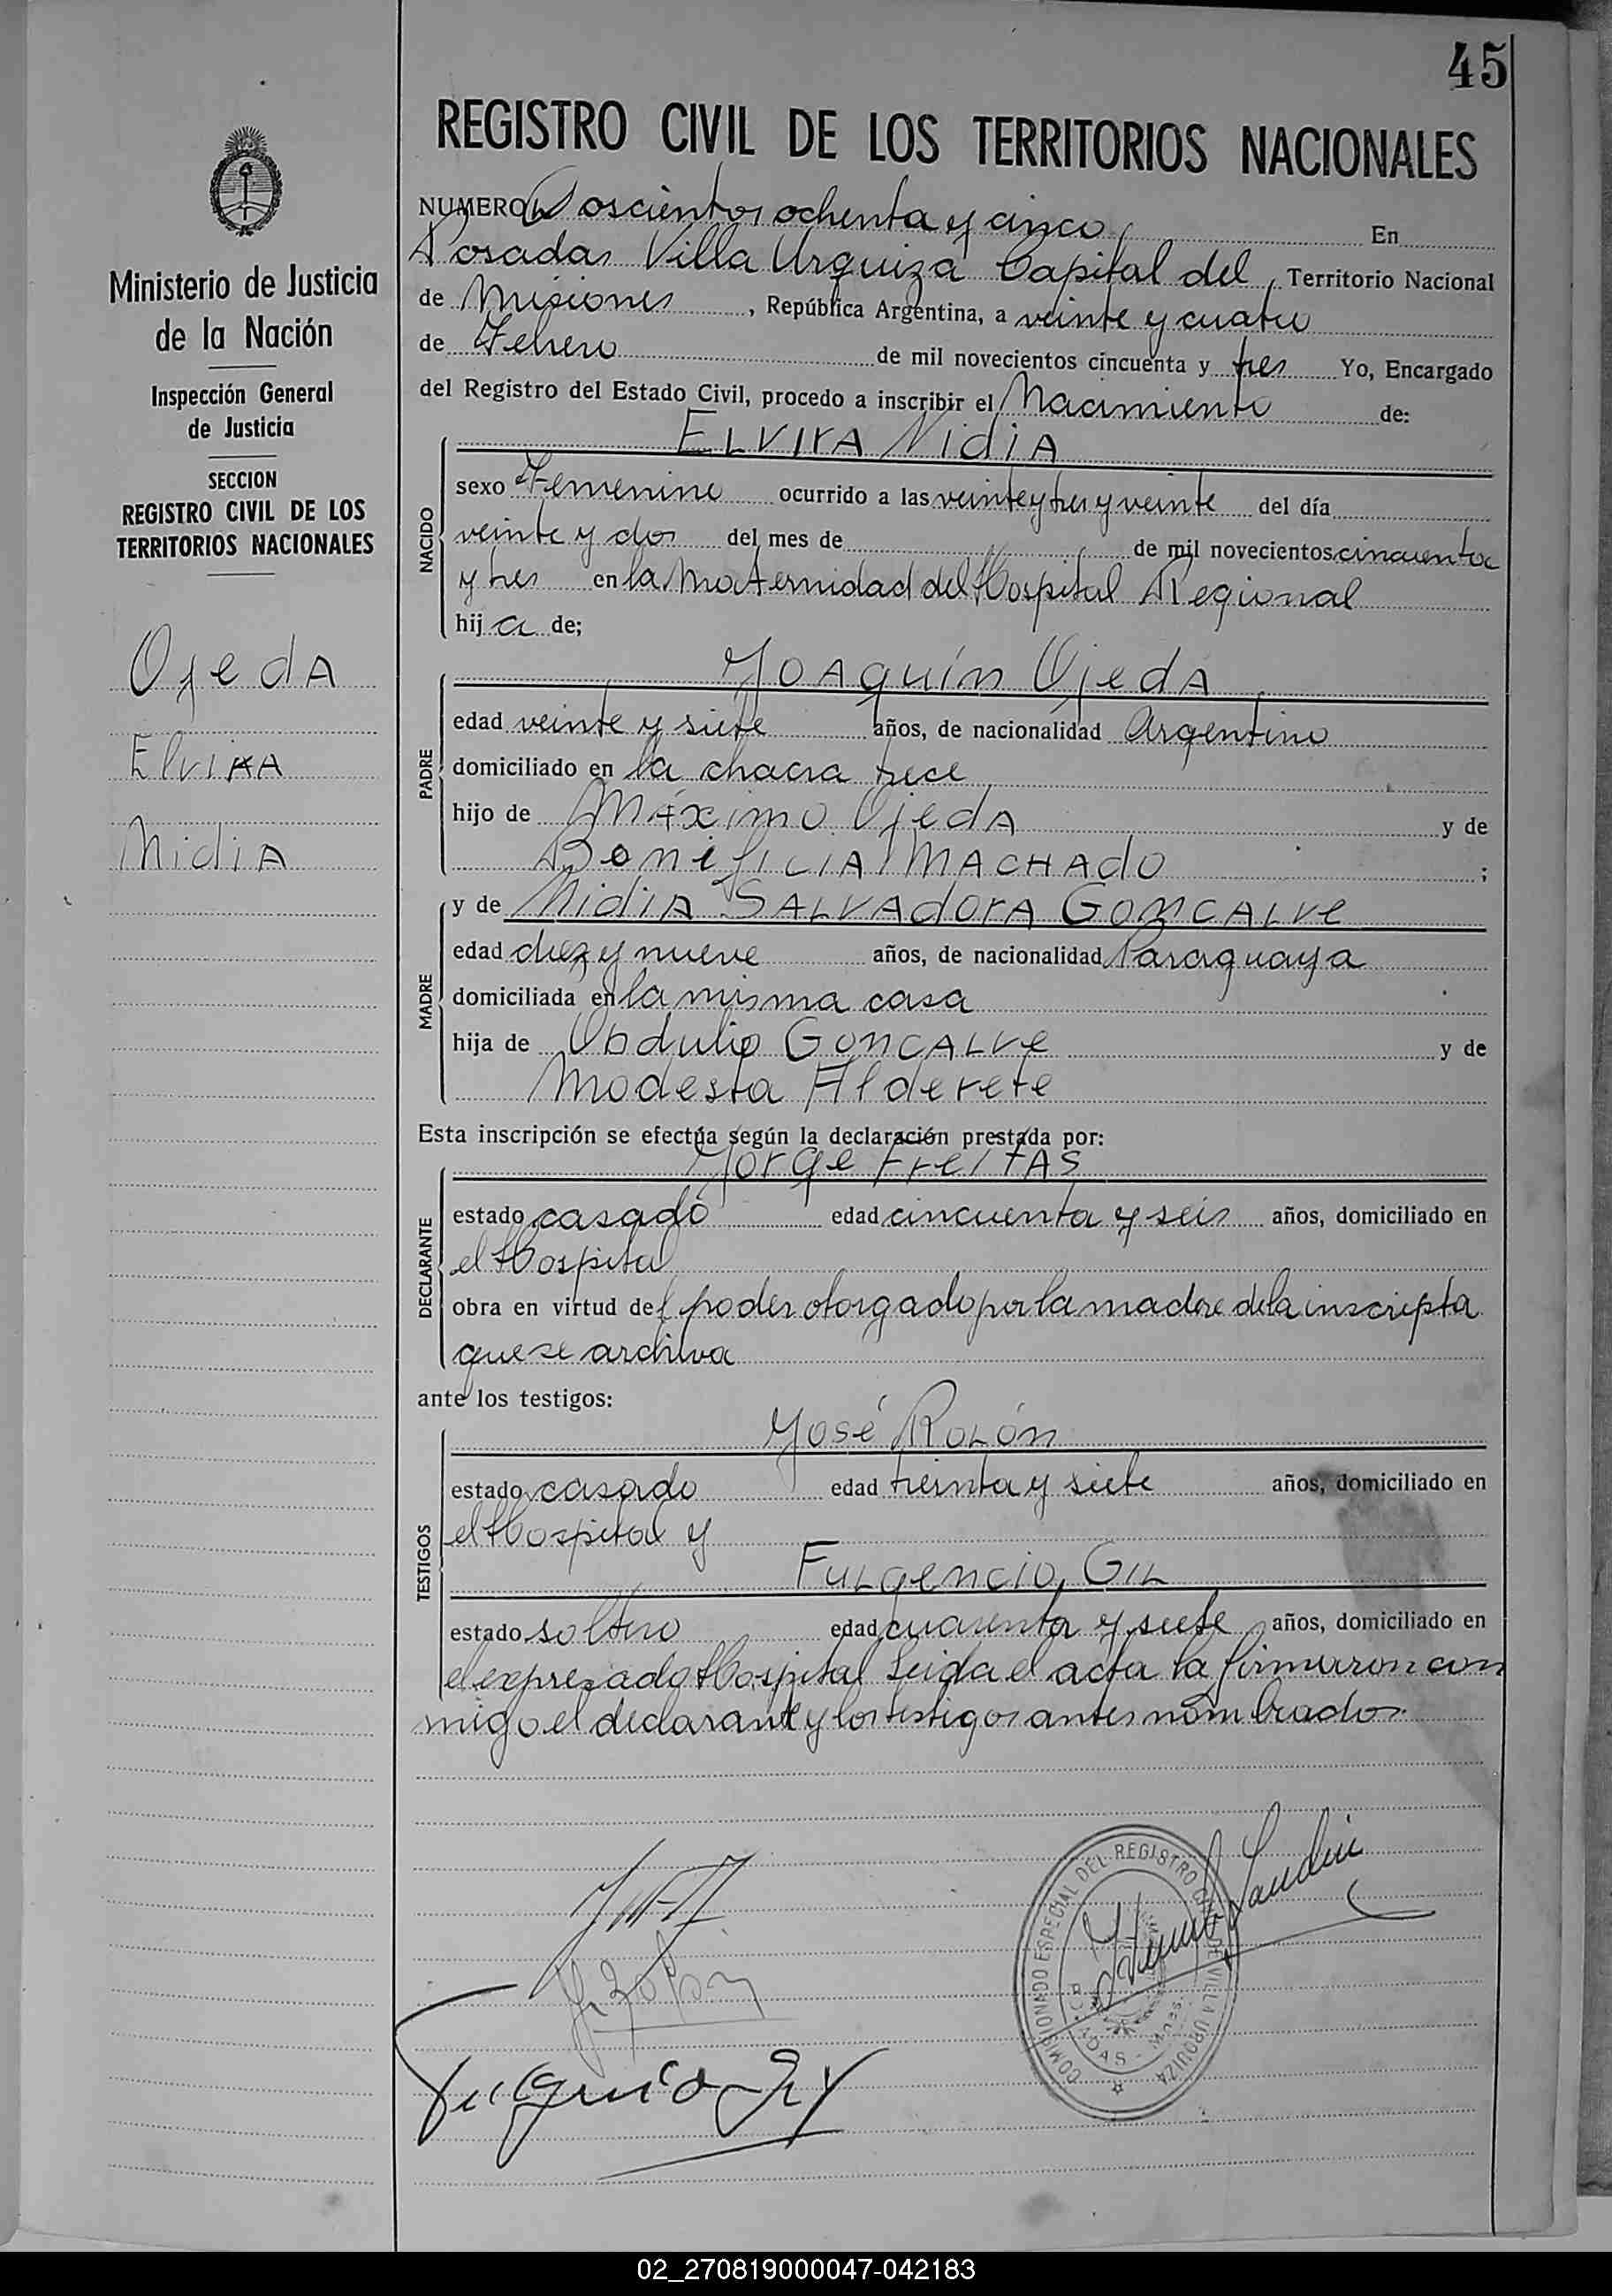 45
REGISTRO CIVIL DE LOS TERRITORIOS NACIONALES
Ministerio de Justicia
de la Nación
Inspección General
de Justicia
SECCION
REGISTRO CIVIL DE LOS
TERRITORIOS NACIONALES
Ojeda
Elvira
Nidia
NUMERO Doscientos ochenta y cinco En
Posadas Villa Urquiza Capital del Territorio Nacional
de Misiones, República Argentina, a veinte y cuatro
de Febrero de mil novecientos cincuenta y tres Yo, Encargado
del Registro del Estado Civil, procedo a inscribir el Nacimiento de:
NACIDO
ELVIRA NidiA
sexo Femenino ocurrido a las veinte y tres y veinte del día
veinte y dos del mes de de mil novecientos cincuenta
y tres en la Maternidad del Hospital Regional
hija de;
PADRE
Joaquín Ojeda
edad veinte y siete años, de nacionalidad Argentino
domiciliado en la chacra trece
hijo de Máximo Ojeda y de
Bonificia Machado ;
MADRE
y de Nidia Salvadora Goncalve
edad diez y nueve años, de nacionalidad Paraguaya
domiciliada en la misma casa
hija de Obdulio Goncalve y de
Modesta Alderete
Esta inscripción se efectúa según la declaración prestada por:
DECLARANTE
Jorge Freitas
estado casado edad cincuenta y seis años, domiciliado en
el Hospital
obra en virtud del poder otorgado por la madre de la inscripta
que se archiva
ante los testigos:
TESTIGOS
José Rolón
estado casado edad treinta y siete años, domiciliado en
el Hospital y
Fulgencio Gil
estado soltero edad cuarenta y siete años, domiciliado en
el expresado Hospital Leida el acta la firmaron con
migo el declarante y los testigos antes nombrados.
COMISIONADO ESPECIAL DEL REGISTRO CIVIL DE VILLA URQUIZA
POSADAS - Mnes.
02_270819000047-042183